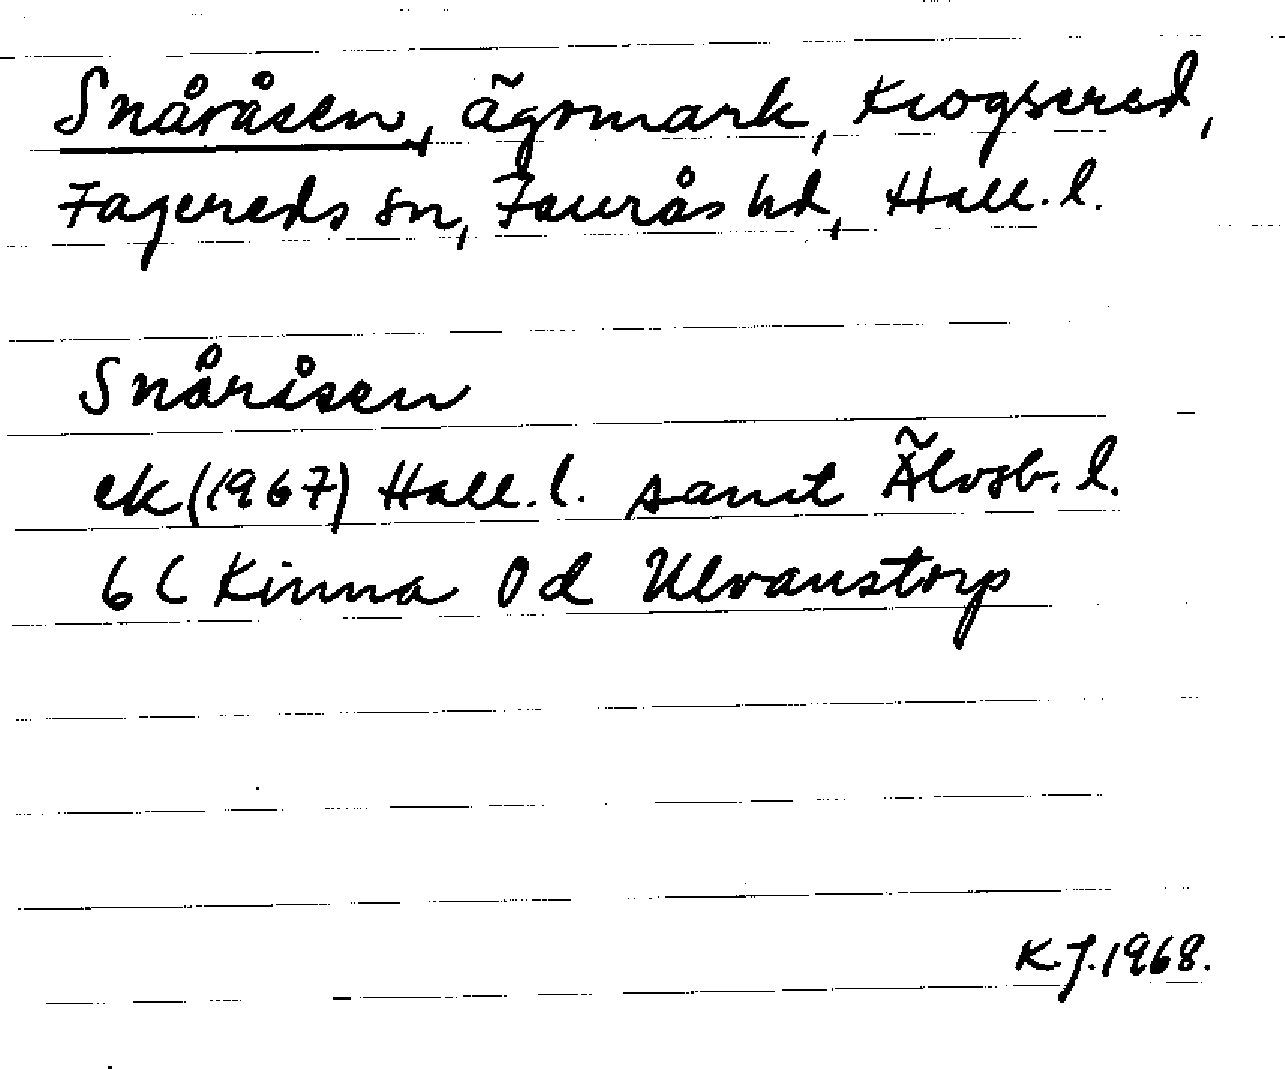 Snåråsen, ägomark, Krogsered,
Fagereds sn, Faurås hd, Hall. l.
Snåråsen
ek (1967) Hall. l. samt Älvsb. l.
6 C Kinna 0 d Ulvanstorp
K.J. 1968.